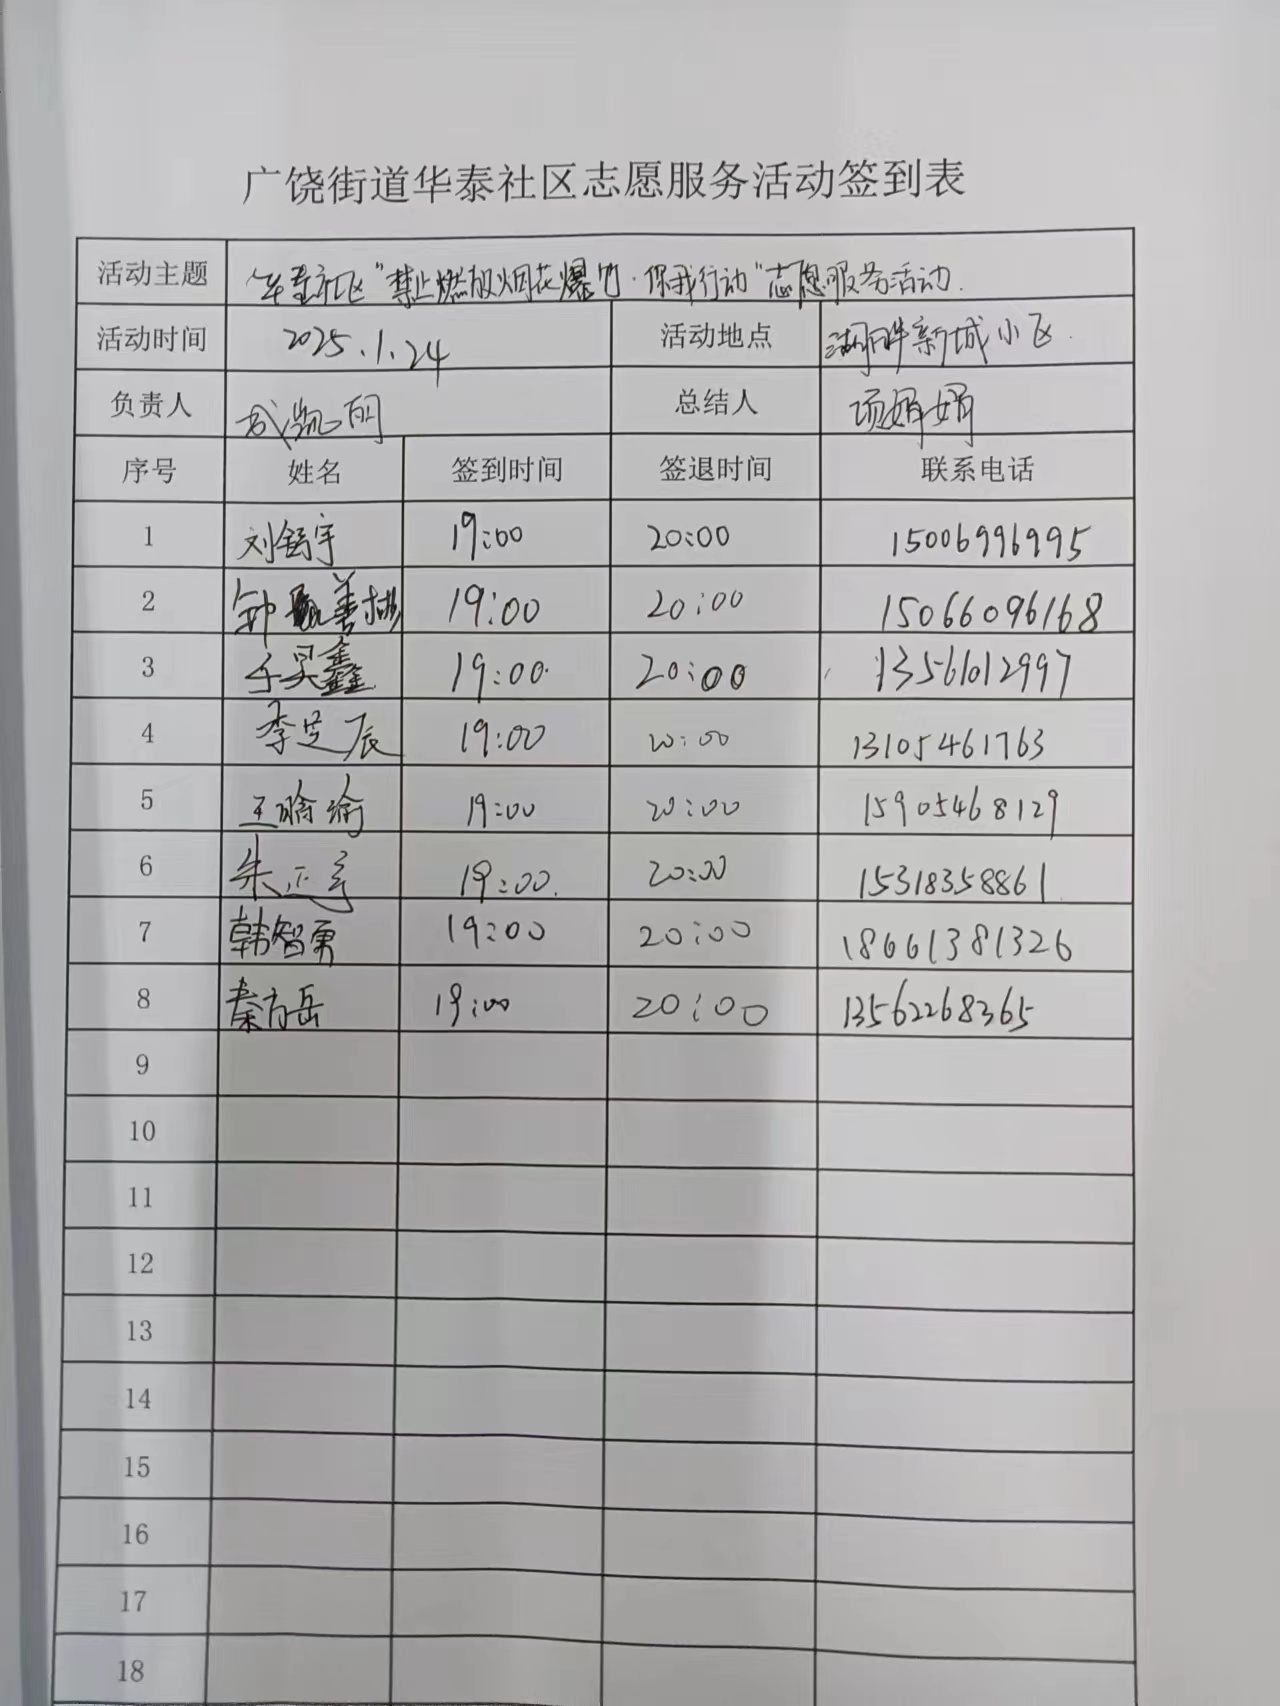 广饶街道华泰社区志愿服务活动签到表
活动主题 华泰社区“禁止燃放烟花爆竹·你我行动”志愿服务活动.
活动时间 2025.1.24 活动地点 湖畔新城小区.
负责人 成凯丽 总结人 项娟娟
序号 姓名 签到时间 签退时间 联系电话
1 刘宇 19:00 20:00 15006996995
2 钟善彬 19:00 20:00 15066096168
3 于昊鑫 19:00 20:00 13561012997
4 李芝辰 19:00 20:00 13105461763
5 王瑜 19:00 20:00 15905468129
6 朱正 19:00. 20:00 15318358861
7 韩智勇 19:00 20:00 18661381326
8 秦方岳 19:00 20:00 13562268365
9
10
11
12
13
14
15
16
17
18